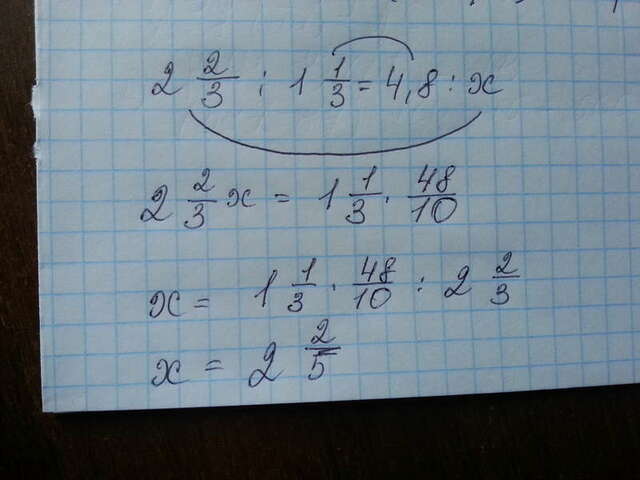 2 2/3 : 1 1/3 = 4,8 : x
2 2/3 x = 1 1/3 · 48/10
x = 1 1/3 · 48/10 : 2 2/3
x = 2 2/5